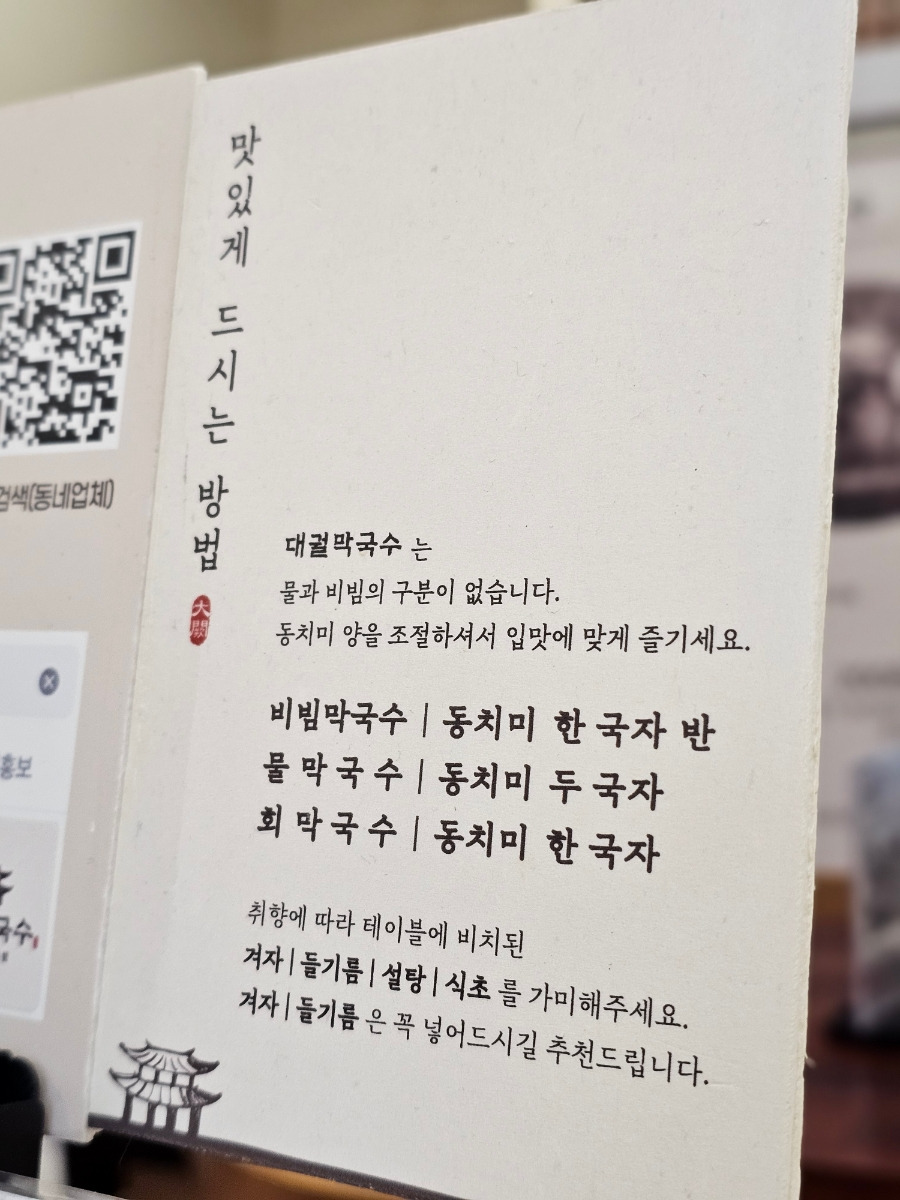 검색(동네업체)
홍보
국수
맛있게 드시는 방법
大闕
대궐막국수 는
물과 비빔의 구분이 없습니다.
동치미 양을 조절하셔서 입맛에 맞게 즐기세요.
비빔막국수 | 동치미 한 국자 반
물 막 국 수 | 동치미 두 국자
회 막 국 수 | 동치미 한 국자
취향에 따라 테이블에 비치된
겨자 | 들기름 | 설탕 | 식초 를 가미해주세요.
겨자 | 들기름 은 꼭 넣어드시길 추천드립니다.